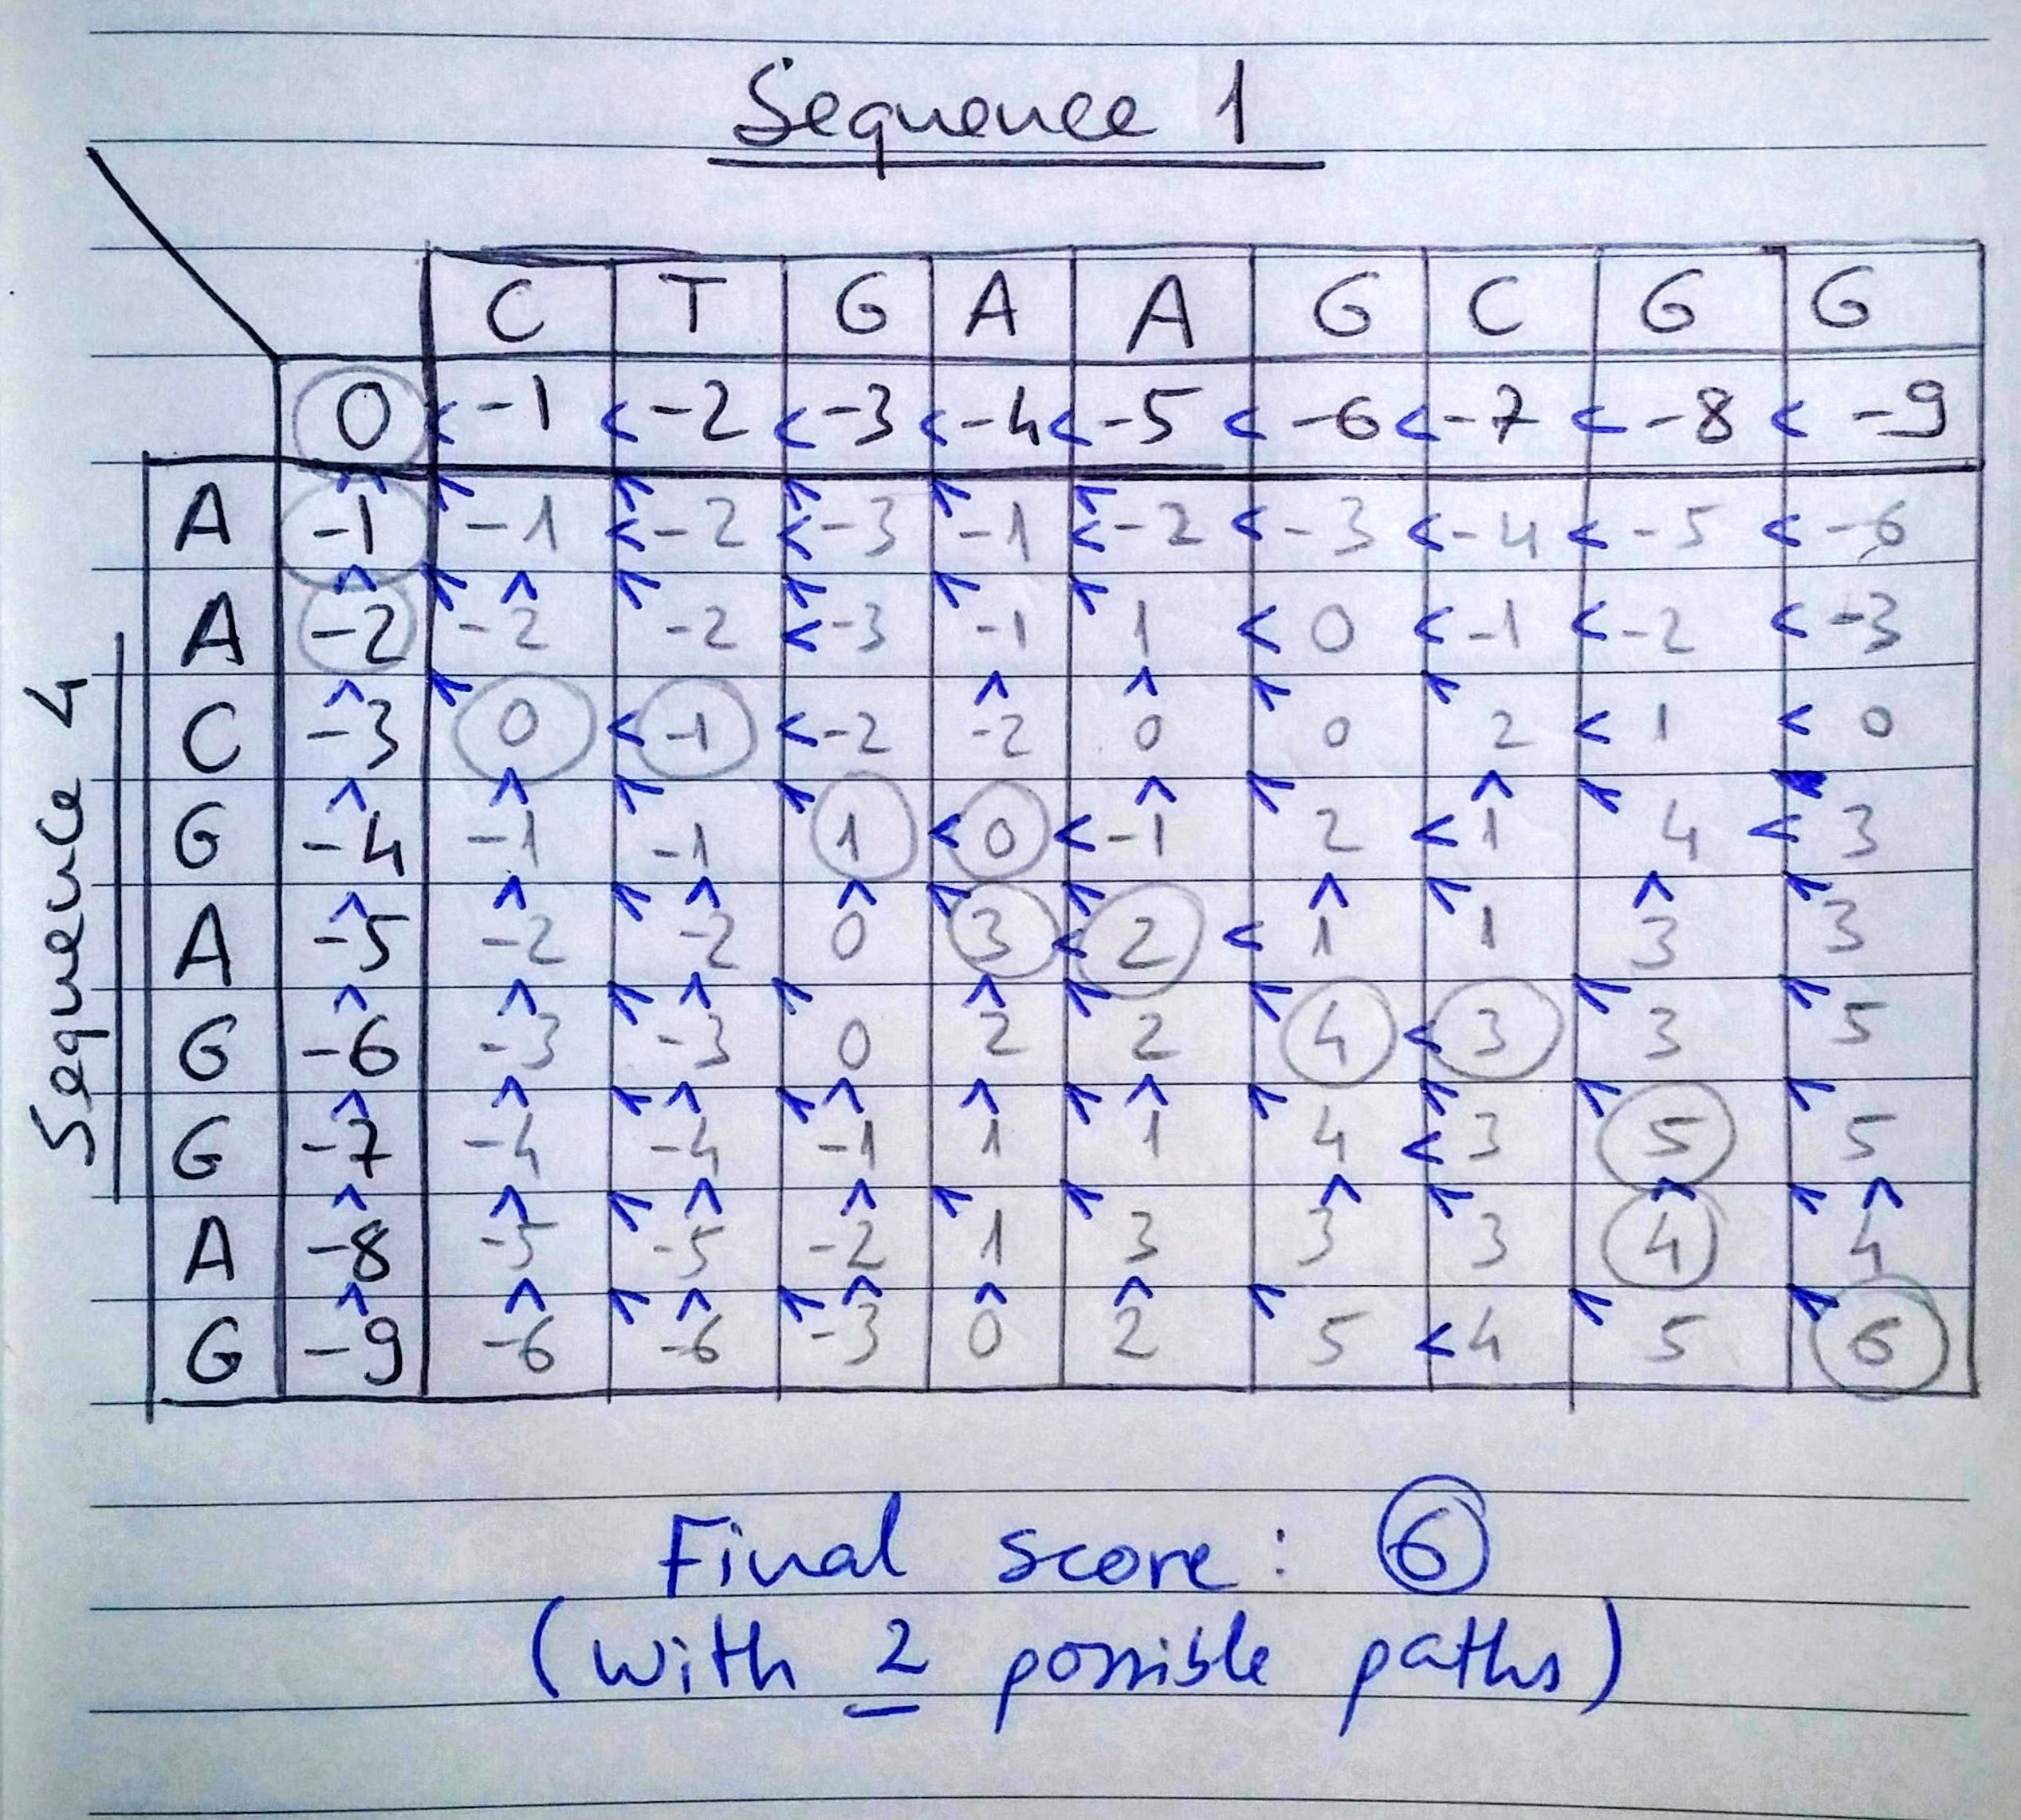 Sequence 1
C T G A A G C G G
0 < -1 < -2 < -3 < -4 < -5 < -6 < -7 < -8 < -9
A -1 -1 < -2 < -3 -1 < -2 < -3 < -4 < -5 < -6
A -2 -2 -2 < -3 -1 1 < 0 < -1 < -2 < -3
C -3 0 < -1 < -2 -2 0 0 2 < 1 < 0
G -4 -1 -1 1 < 0 < -1 2 < 1 4 < 3
A -5 -2 -2 0 3 < 2 < 1 1 3 3
G -6 -3 -3 0 2 2 4 < 3 3 5
G -7 -4 -4 -1 1 1 4 < 3 5 5
A -8 -5 -5 -2 1 3 3 3 4 4
G -9 -6 -6 -3 0 2 5 < 4 5 6
Sequence 4
Final score: 6
(with 2 possible paths)